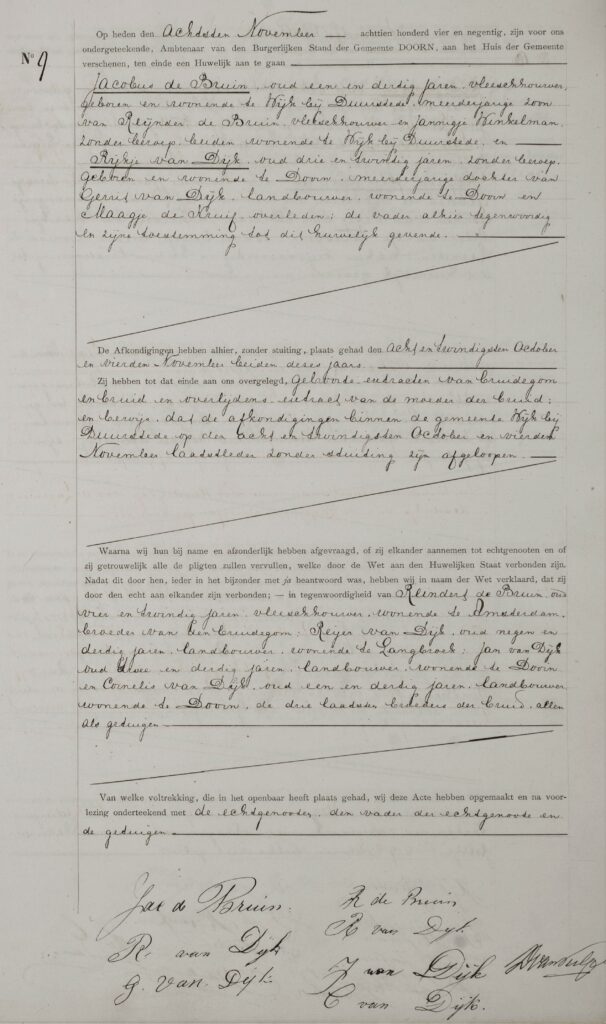 Op heden den achtsten November achttien honderd vier en negentig, zijn voor ons
ondergeteekende, Ambtenaar van den Burgerlijken Stand der Gemeente DOORN, aan het Huis der Gemeente
verschenen, ten einde een Huwelijk aan te gaan
No 9
Jacobus de Bruin, oud een en dertig jaren, vleeschhouwer,
geboren en wonende te Wijk bij Duurstede, meerderjarige zoon
van Reijnder de Bruin, vleeschhouwer en Jannigje Winkelman,
zonder beroep, beiden wonende te Wijk bij Duurstede, en
Rijkje van Dijk, oud drie en twintig jaren, zonder beroep,
geboren en wonende te Doorn, meerderjarige dochter van
Gerrit van Dijk, landbouwer, wonende te Doorn en
Maagje de Kruif overleden; de vader alhier tegenwoordig
en zijne toestemming tot dit huwelijk gevende.
De Afkondigingen hebben alhier, zonder stuiting, plaats gehad den acht en twintigsten October
en vierden November beiden dezes jaars
Zij hebben tot dat einde aan ons overgelegd, geboorte extracten van bruidegom
en bruid en overlijdens extract van de moeder der bruid;
en bewijs, dat de afkondigingen binnen de gemeente Wijk bij
Duurstede op den acht en twintigsten October en vierden
November laatstleden zonder stuiting zijn afgeloopen.
Waarna wij hun bij name en afzonderlijk hebben afgevraagd, of zij elkander aannemen tot echtgenooten en of
zij getrouwelijk alle de pligten zullen vervullen, welke door de Wet aan den Huwelijken Staat verbonden zijn.
Nadat dit door hen, ieder in het bijzonder met ja beantwoord was, hebben wij in naam der Wet verklaard, dat zij
door den echt aan elkander zijn verbonden; — in tegenwoordigheid van Reindert de Bruin, oud
vier en twintig jaren, vleeschhouwer, wonende te Amsterdam,
broeder van den bruidegom; Reijer van Dijk, oud negen en
dertig jaren, landbouwer, wonende te Langbroek; Jan van Dijk
oud twee en dertig jaren, landbouwer, wonende te Doorn
en Cornelis van Dijk, oud een en dertig jaren, landbouwer,
wonende te Doorn, de drie laatsten broeders der bruid, allen
als getuigen
Van welke voltrekking, die in het openbaar heeft plaats gehad, wij deze Acte hebben opgemaakt en na voor-
lezing onderteekend met de echtgenooten, den vader der echtgenoote en
de getuigen
Jac de Bruin.
R de Bruin
R. van Dijk
R van Dijk
G. van Dijk.
J van Dijk
C van Dijk.